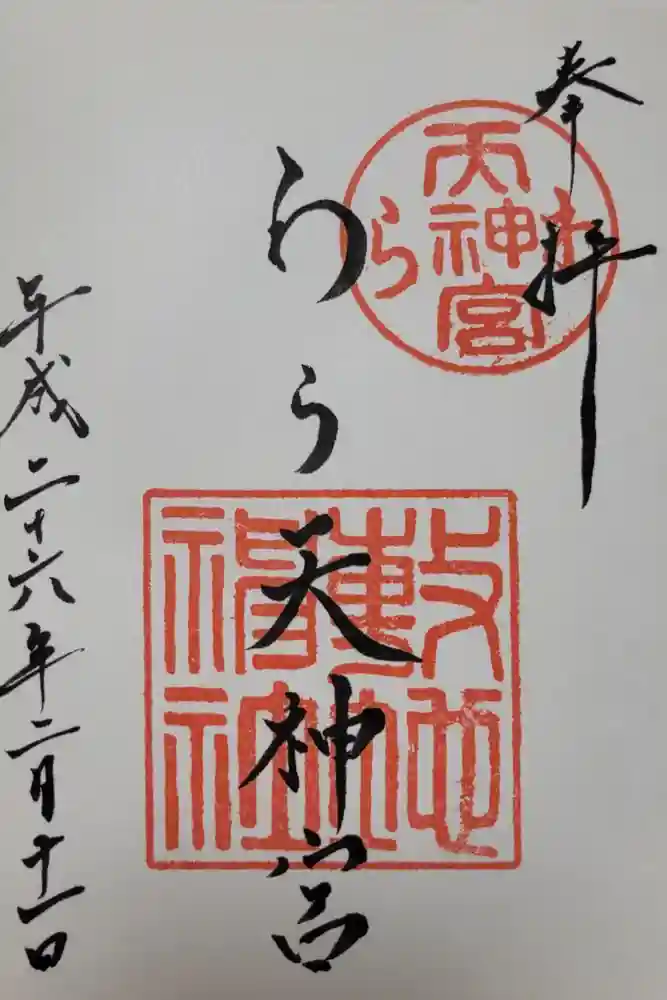 奉拝
わら天神宮
平成二十六年二月十一日
わ
天神宮
ら
敷地
神社